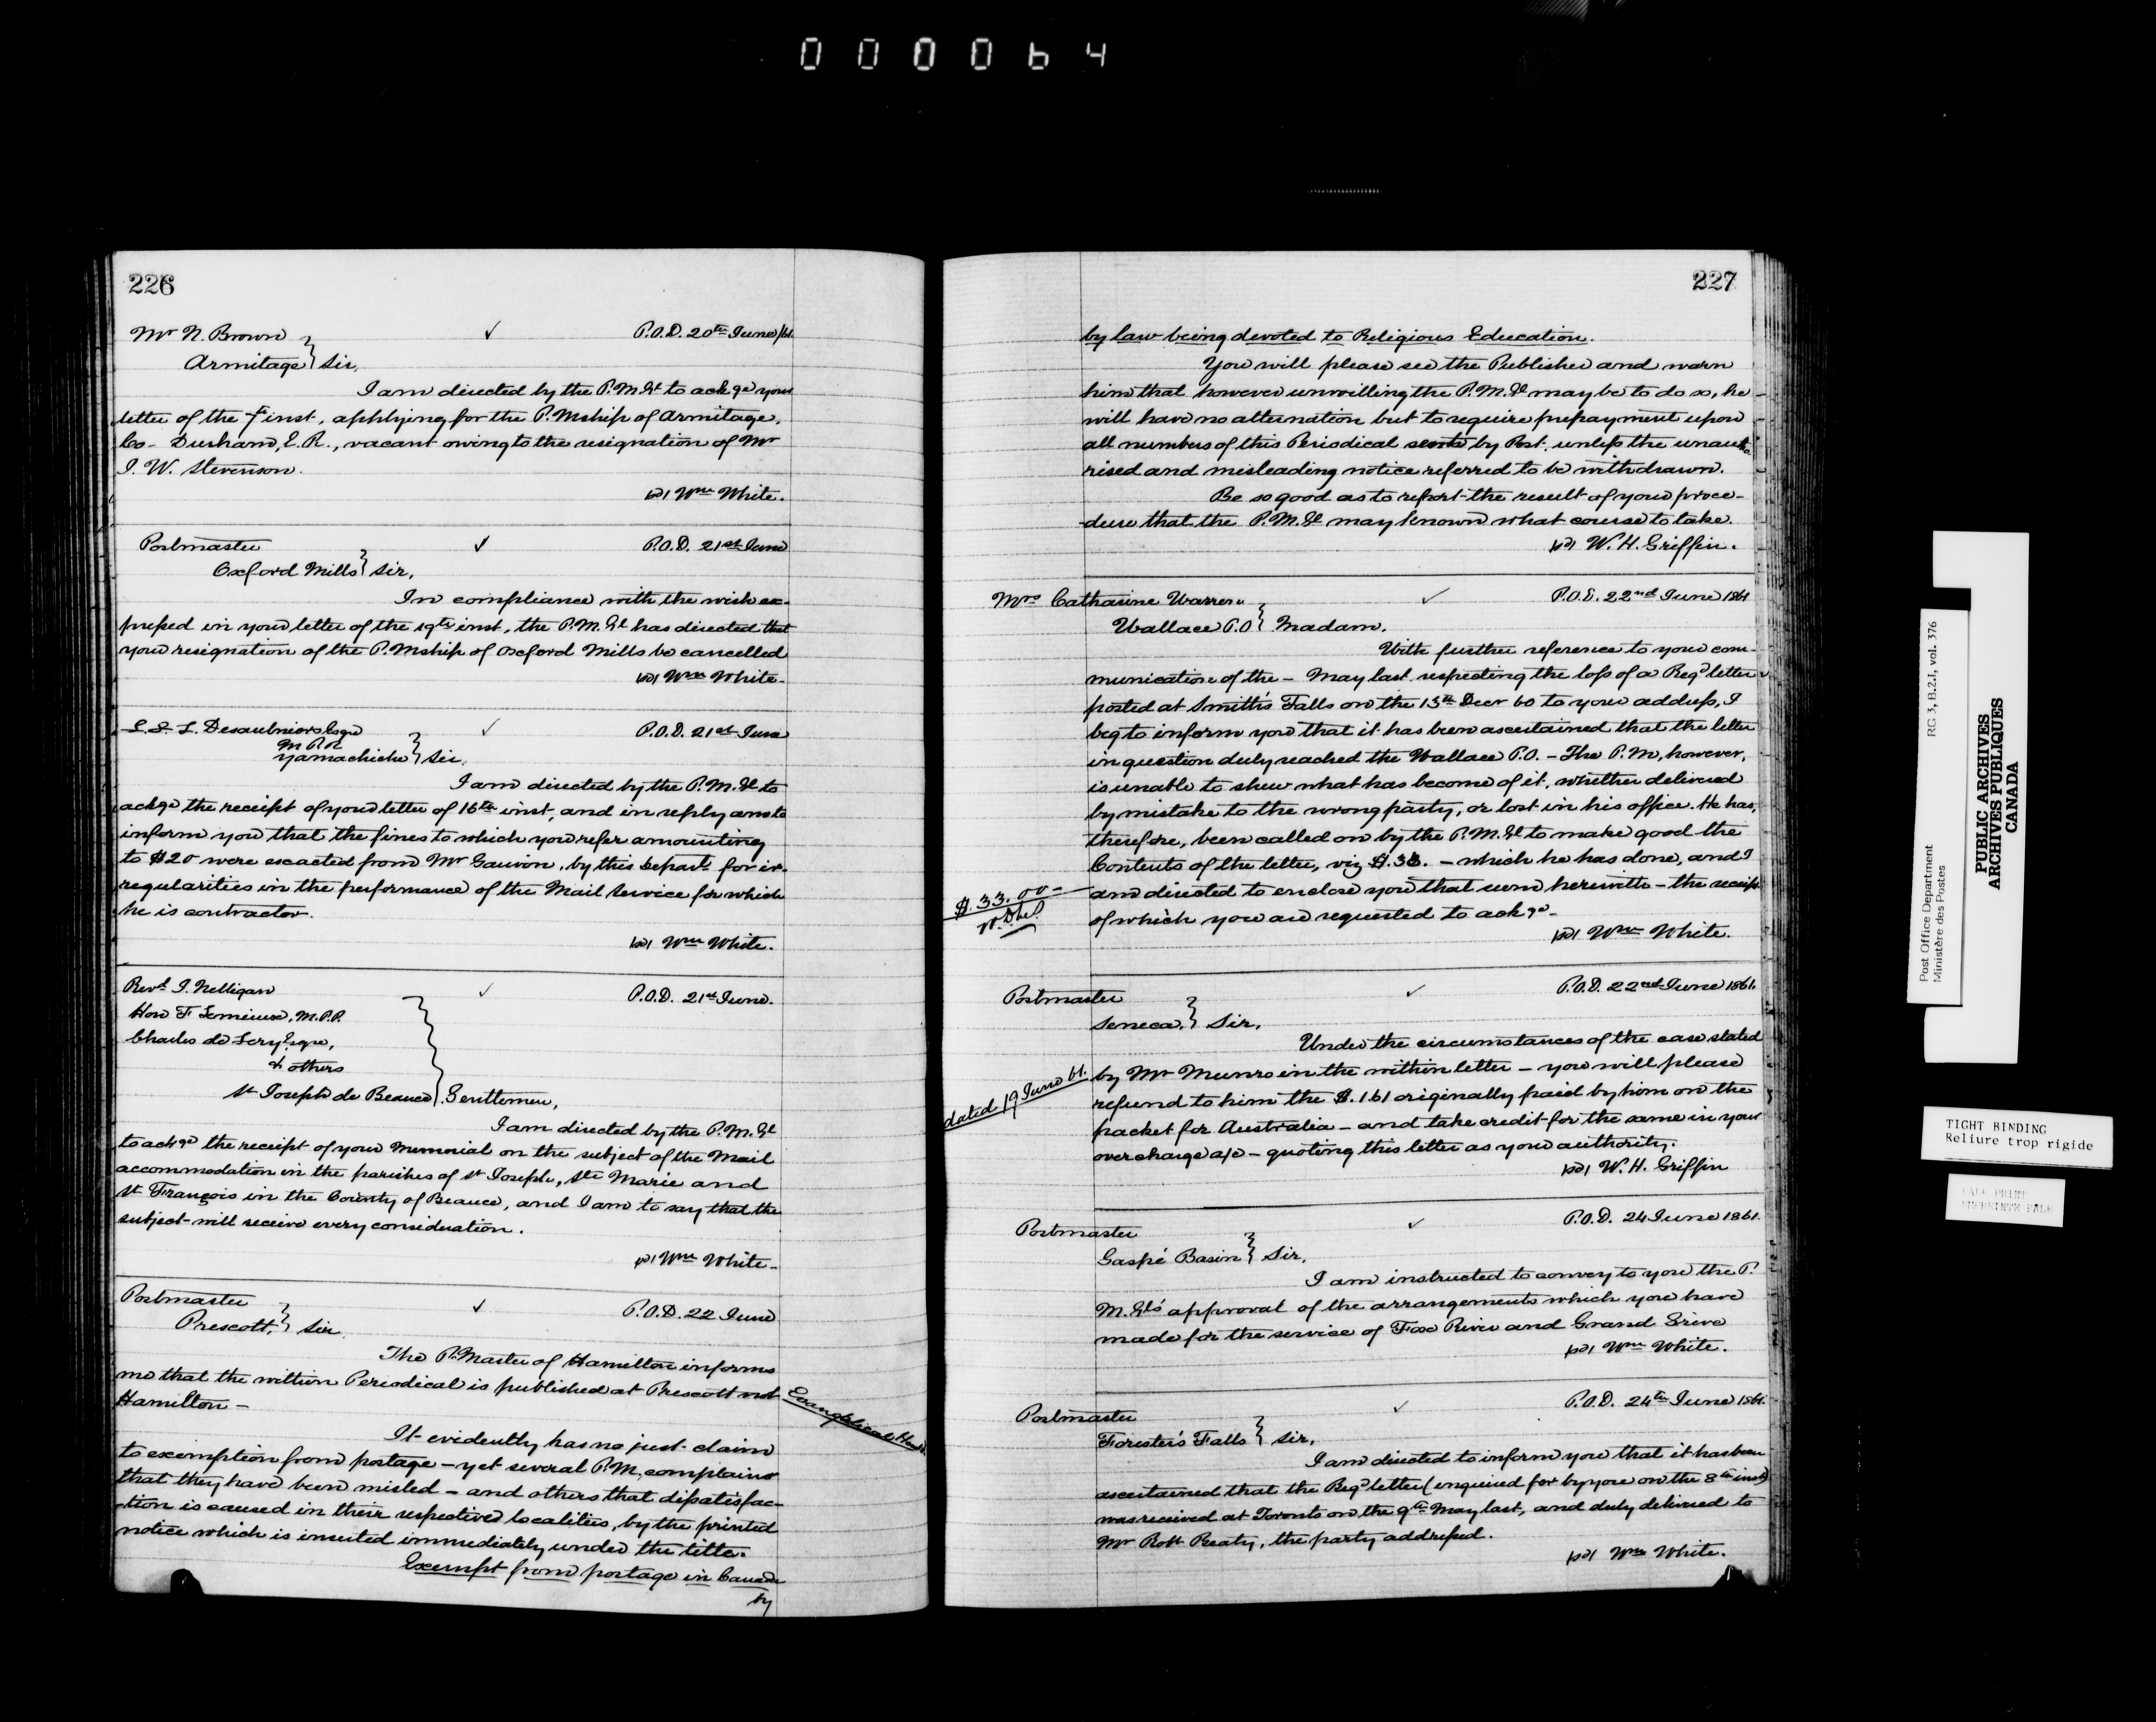 000064
226
Mr N. Brown
P.O.D. 20th June/61.
Armitage } Sir,
I am directed by the P.M.Gl to ackge your
letter of the 7th inst, applying for the P.Mship of Armitage,
Co- Durham, E.R., vacant owing to the resignation of Mr
J. W. Stevenson.
Wm White.
Postmaster
P.O.D. 21st June
Oxford Mills } Sir,
In compliance with the wish ex-
pressed in your letter of the 19th inst, the P.M.Gl has directed that
your resignation of the P.Mship of Oxford Mills be cancelled
Wm White-
L. L. L. Desaulniers Esqre
P.O.D. 21st June
M.P.P.
Yamachiche } Sir,
I am directed by the P.M.Gl to
ackge the receipt of your letter of 16th inst, and in reply am to
inform you that the fines to which you refer amounting
to $20 were exacted from Mr Gauvin, by this Depart for ir-
regularities in the performance of the Mail Service for which
he is contractor.
Wm White.
Revd J. Nelligan
P.O.D. 21st June.
Hon F Lemieux, M.P.P.
Charles de Lery Esqre,
& others
St Joseph de Beauce } Gentlemen,
I am directed by the P.M.Gl
to ackge the receipt of your Memorial on the subject of the Mail
accommodation in the parishes of St Joseph, Ste Marie and
St François in the County of Beauce, and I am to say that the
subject will receive every consideration.
Wm White-
Postmaster
P.O.D. 22 June
Prescott, } Sir
The P.Master of Hamilton informs
me that the within Periodical is published at Prescott not
Hamilton -
Evangelical
It evidently has no just claim
to exemption from postage - yet several P.M. complains
that they have been misled - and others that dissatisfac-
tion is caused in their respective localities, by the printed
notice which is inserted immediately under the title.
Exempt from postage in Canada
by
227
by law being devoted to Religious Education.
You will please see the Publisher and warn
him that however unwilling the P.M.Gl may be to do so, he
will have no alternation but to require prepayment upon
all numbers of this Periodical sent by Post, unless the unautho
rised and misleading notice referred to be withdrawn.
Be so good as to report the result of your proce-
dure that the P.M.Gl may known what course to take.
W. H. Griffin.
Mrs Catharine Warren
P.O.D. 22nd June 1861
Wallace P.O } Madam,
With further reference to your com-
munication of the - May last respecting the loss of a Regd letter
posted at Smith's Falls on the 13th Decr 60 to your address, I
beg to inform you that it has been ascertained that the letter
in question duly reached the Wallace P.O. - The P.M, however,
is unable to shew what has become of it, whether delivered
by mistake to the wrong party, or lost in his office. He has,
therefore, been called on by the P.M.Gl to make good the
Contents of the letter, viz $.33. - which he has done, and I
$.33.00
am directed to enclose you that sum herewith - the receipt
of which you are requested to ackge-
Wm White.
Postmaster
P.O.D. 22nd June 1861.
Seneca, } Sir,
Under the circumstances of the case stated
dated 19 June 61.
by Mr Munro in the within letter - you will please
refund to him the $.1.61 originally paid by him on the
packet for Australia - and take credit for the same in your
overcharge a/c - quoting this letter as your authority.
W. H. Griffin
Postmaster
P.O.D. 24 June 1861.
Gaspé Basin } Sir,
I am instructed to convey to you the P.
M.Gl's approval of the arrangements which you have
made for the service of Fox River and Grand Greve
Wm White.
Postmaster
P.O.D. 24th June 1861.
Forester's Falls } Sir,
I am directed to inform you that it has been
ascertained that the Regd letter (enquired for by you on the 8th inst)
was received at Toronto on the 9th May last, and duly delivered to
Mr Robt Beaty, the party addressed.
Wm White.
Post Office Department
Ministère des Postes
RG 3, B.2.I, vol. 376
PUBLIC ARCHIVES
ARCHIVES PUBLIQUES
CANADA
TIGHT BINDING
Reliure trop rigide